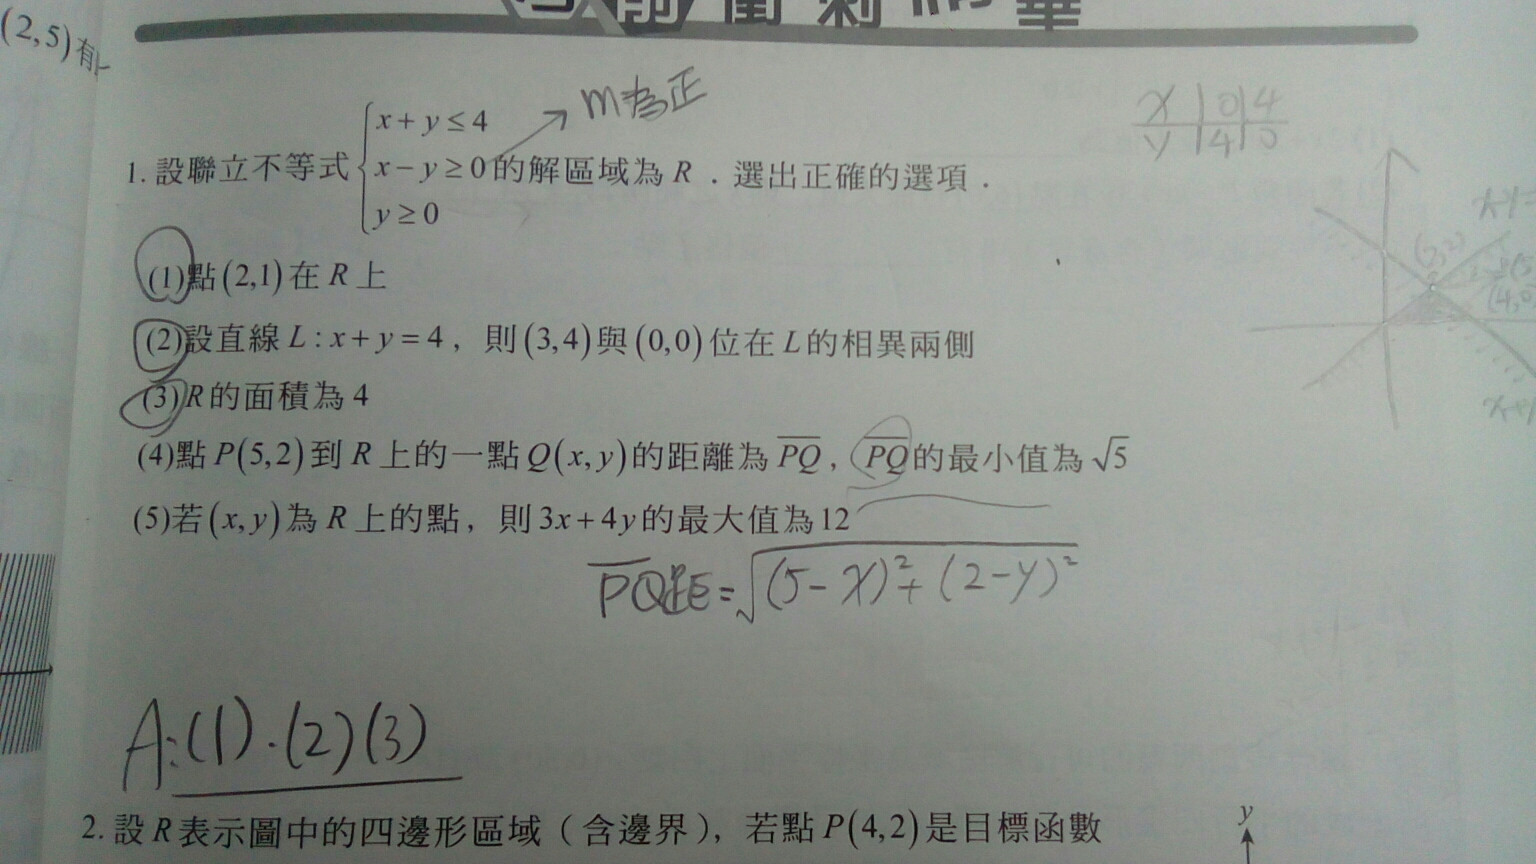 (2,5)有
前衝刺精華
m為正
x 0 4
y 4 0
x + y ≤ 4
1. 設聯立不等式 x − y ≥ 0 的解區域為 R．選出正確的選項．
y ≥ 0
(1)點(2,1)在 R 上
(2,2)
(4,0)
(2)設直線 L : x + y = 4，則(3,4)與(0,0)位在 L 的相異兩側
(3) R 的面積為 4
(4)點 P(5,2) 到 R 上的一點 Q(x,y) 的距離為 \overline{PQ}，\overline{PQ} 的最小值為 √5
(5)若(x,y)為 R 上的點，則 3x + 4y 的最大值為 12
\overline{PQ}距 = √((5−x)²+(2−y)²)
A:(1)．(2)(3)
2. 設 R 表示圖中的四邊形區域（含邊界），若點 P(4,2) 是目標函數
y